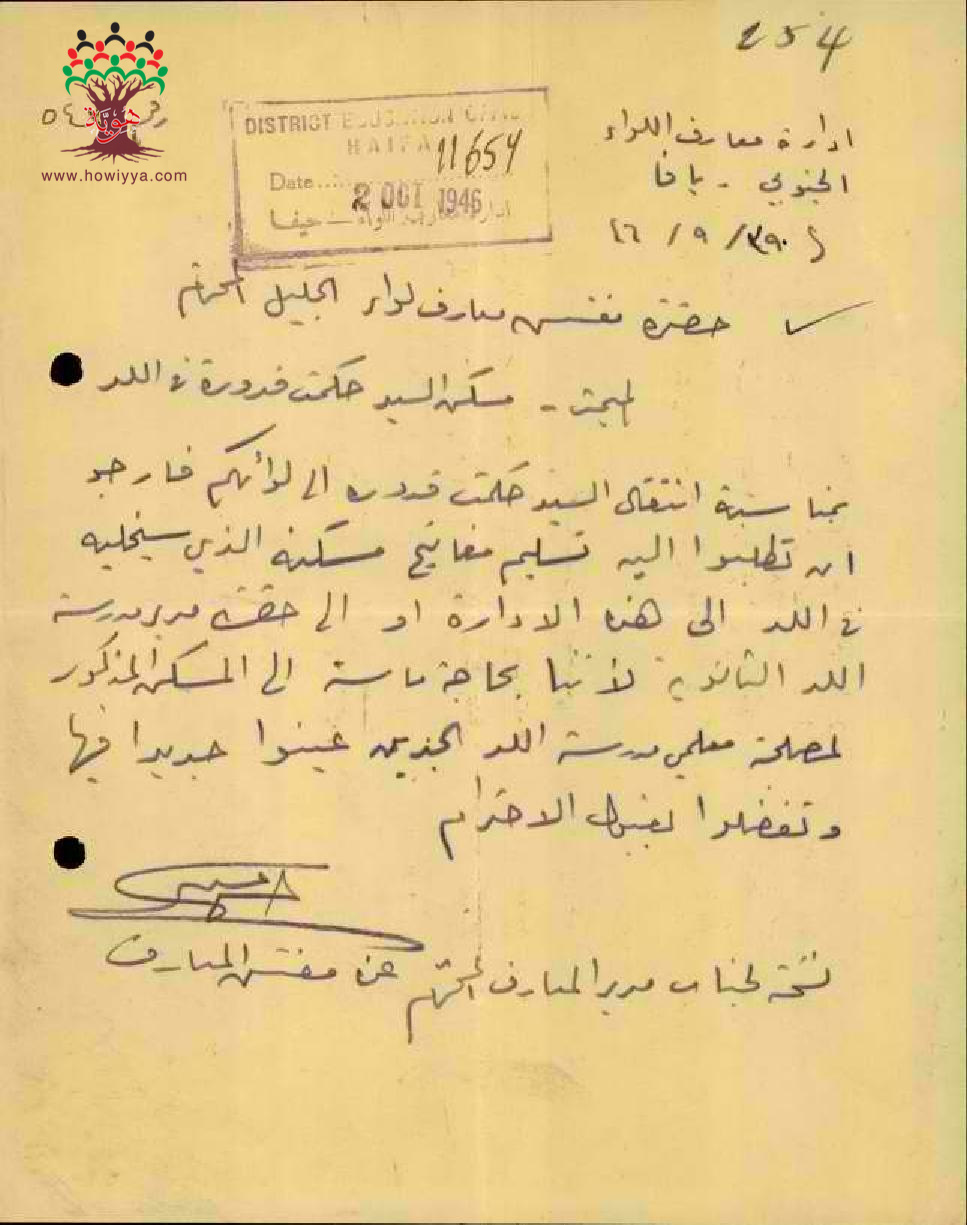 254
هويّة
www.howiyya.com
DISTRICT EDUCATION OFFICE
HAIFA
11654
Date
2 OCT 1946
ادارة معارف اللواء – حيفا
ادارة معارف اللواء
الجنوبي - يافا
٣٠/٩/٤٦
حضرة مفتش معارف لواء الجليل المحترم
المبحث - مسكن السيد حكمت قدورة في اللد
بمناسبة انتقال السيد حكمت قدوره الى لوائكم فارجو
ان تطلبوا اليه تسليم مفاتيح مسكنه الذي سيخليه
في اللد الى هذه الادارة او الى حضرة مدير مدرسة
اللد الثانوية لأننا بحاجة ماسة الى المسكن المذكور
لمصلحة معلمي مدرسة اللد الذين عينوا جديدا فيها
وتفضلوا بقبول الاحترام
عن مفتش المعارف
نسخة لجناب مدير المعارف المحترم